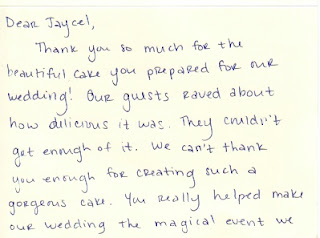 Dear Jaycel,
Thank you so much for the
beautiful cake you prepared for our
wedding! Our guests raved about
how delicious it was. They couldn't
get enough of it. We can't thank
you enough for creating such a
gorgeous cake. You really helped make
our wedding the magical event we